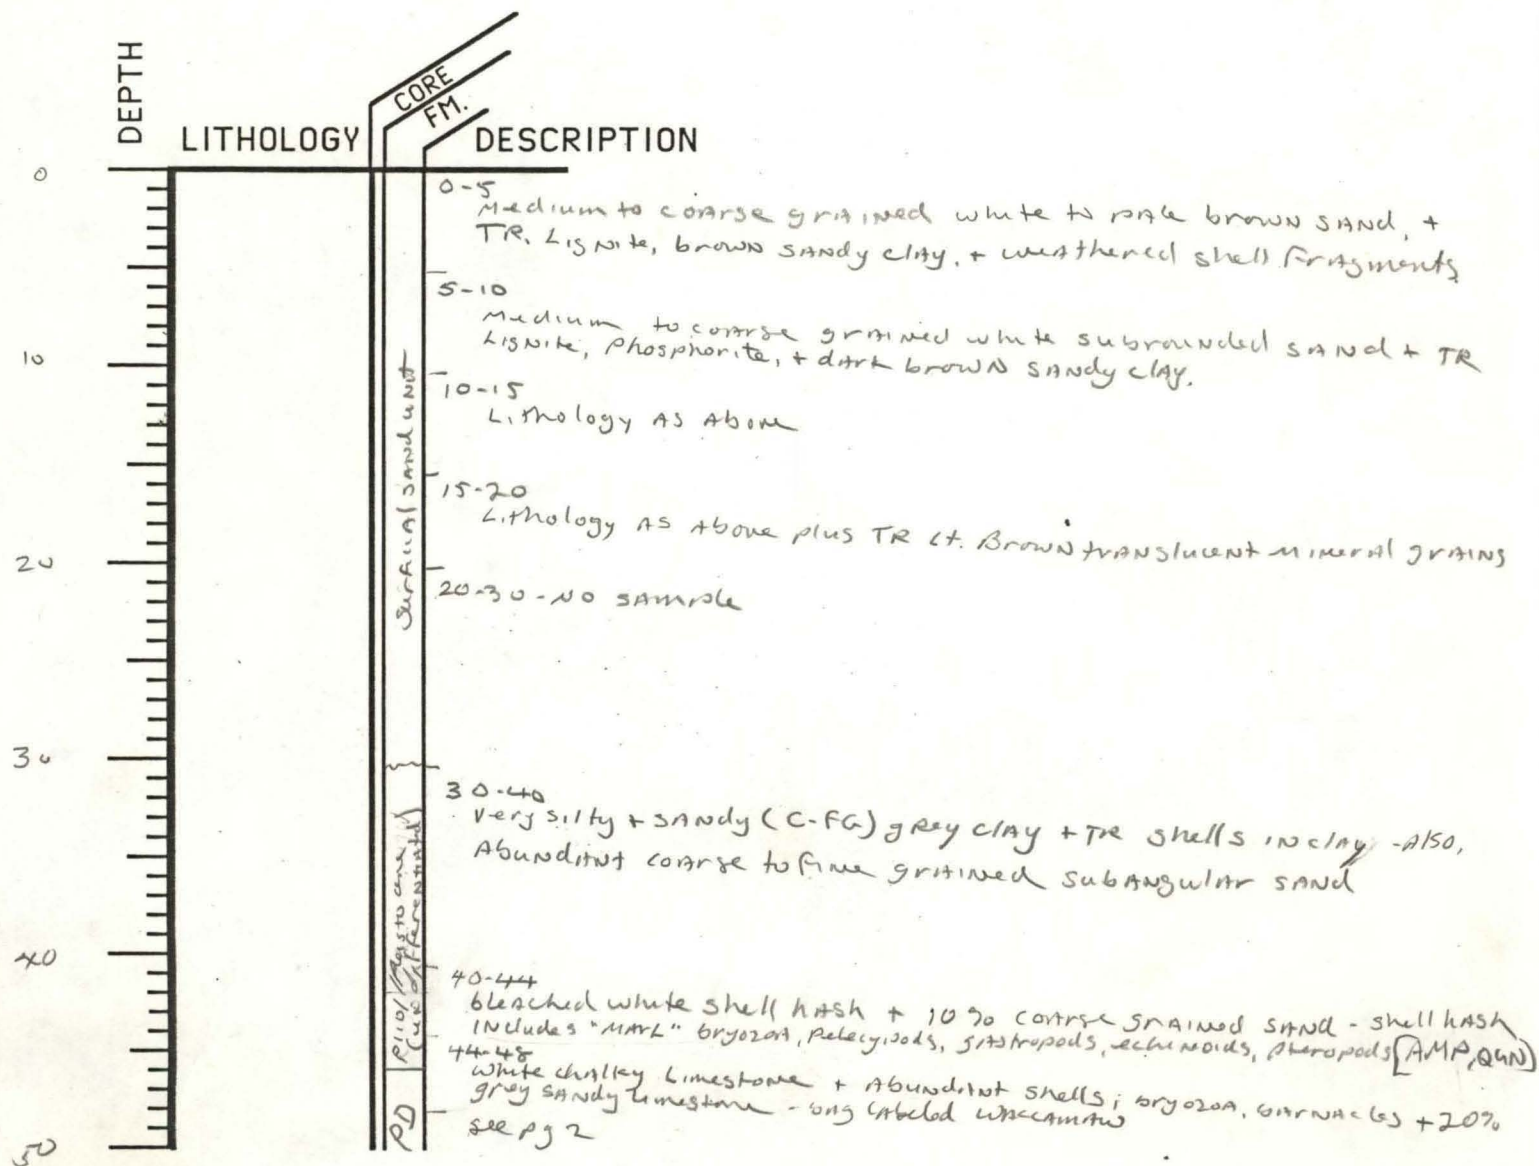 DEPTH
LITHOLOGY
CORE
FM.
DESCRIPTION
0
10
20
30
40
50
surficial sand unit
Plio/Pleistocene
(undifferentiated)
PD
0-5
Medium to coarse grained white to pale brown sand, +
TR. Lignite, brown sandy clay, + weathered shell fragments
5-10
Medium to coarse grained white subrounded sand + TR
Lignite, Phosphorite, + dark brown sandy clay.
10-15
Lithology as above
15-20
Lithology as above plus TR Lt. Brown translucent mineral grains
20-30 - no sample
30-40
very silty + sandy (C-FG) grey clay + TR shells in clay - Also,
Abundant coarse to fine grained subangular sand
40-44
bleached white shell hash + 10% coarse grained sand - shell hash
includes "MARL" bryozoa, pelecypods, gastropods, echinoids, pteropods [AMP, QGN]
44-48
white chalky Limestone + Abundant shells; bryozoa, barnacles + 20%
grey sandy limestone - labeled Waccamaw
see pg 2